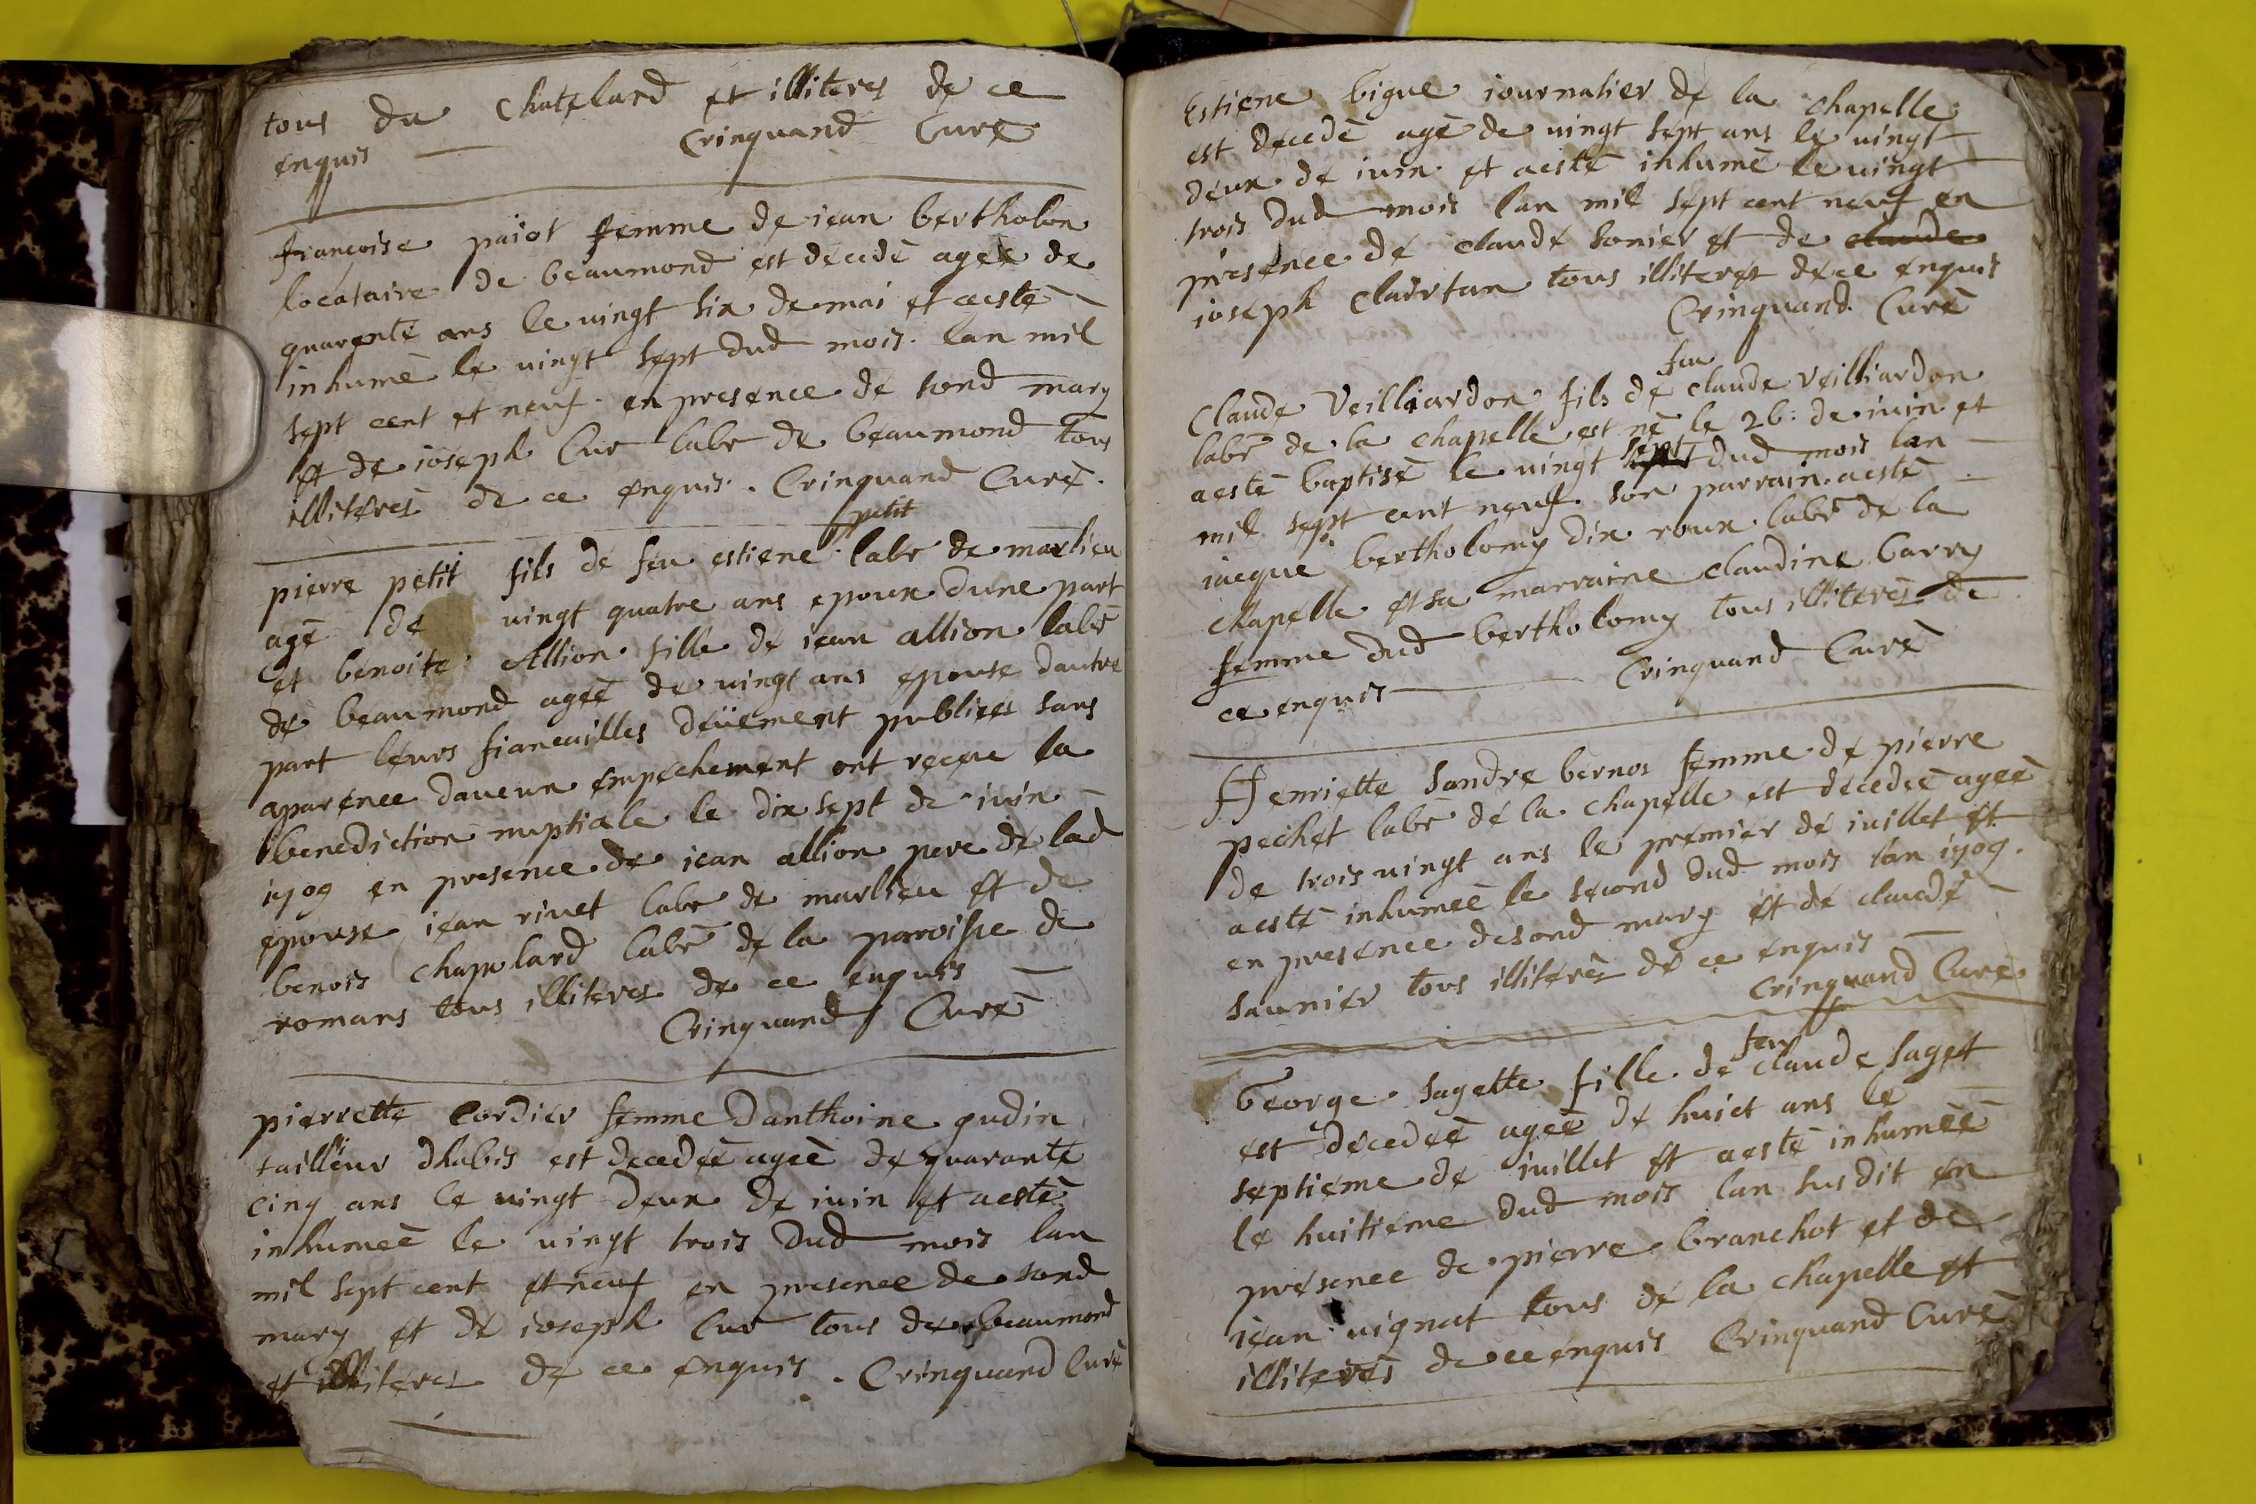 tous du Chatelard et illiteres de ce
enquis Crinquand Curé
françoise païot femme de iean bertholon
locataire de beaumond est décedé ageè de
quarente ans le vingt six de mai et aestè
inhumè le vingt sept dud mois lan mil
sept cent et neuf en presence de sond mary
et de ioseph Cur labr de beaumond tous
illiterès de ce enquis. Crinquand Curè.
petit
pierre petit fils de feu estiene labr de marlieu
agè de vingt quatre ans epoux dune part
et benoite Allion fille de iean allion labr
de beaumond ageè de vingt ans epouse dautre
part leurs fiancailles deüement publiees sans
aparence daucun empechement ont reçeue la
benediction nuptiale le dix sept de iuin
1709 en presence de iean allion pere de lad
epouse iean rivet labr de marlieu et de
benois Chapelard labr de la paroisse de
romans tous illiteres de ce enquis
Crinquand Curè
pierrette Cordier femme danthoine gudin
tailleur dhabis est decedeè ageè de quarante
cinq ans le vingt deux de iuin et aestè
inhumeè le vingt trois dud mois lan
mil sept cent et neuf en presence de sond
mary et de ioseph Cur tous de beaumond
et illiteres de ce enquis. Crinquand Curè
Estiene bigue iournalier de la chapelle
est decedè agè de vingt sept ans le vingt
deux de iuin et aestè inhumè le vingt
trois dud mois lan mil sept cent neuf en
presence de claude sonier et de claude
ioseph Clairtan tous illiteres de ce enquis
Crinquand Curè
feu
Claude Veilliardon fils de claude veilliardon
labr de la chapelle est nè le 26: de iuin et
sept
aestè baptisè le vingt sept dud mois lan
mil sept cent neuf son parrain aestè
iacque bertholomy dix roux labr de la
chapelle et sa marraine claudine barry
femme dud bertholomy tous illiterès de
ce enquis Crinquand Curè
Henriette Sandre bernos femme de pierre
pechet labr de la chapelle est decedeè ageè
de trois vingt ans le premier de iuillet et
aestè inhumeè le second dud mois lan 1709.
en presence desond mary et de claude
saunier tous illiterès de ce enquis
Crinquand Curè
feu
George sagette fille de claude saget
est decedeè ageè de huict ans le
septieme de iuillet et aestè inhumeè
le huitieme dud mois lan susdit en
presence de pierre branchot et de
iean vignat tous de la chapelle et
illiterès de ce enquis Crinquand Curè